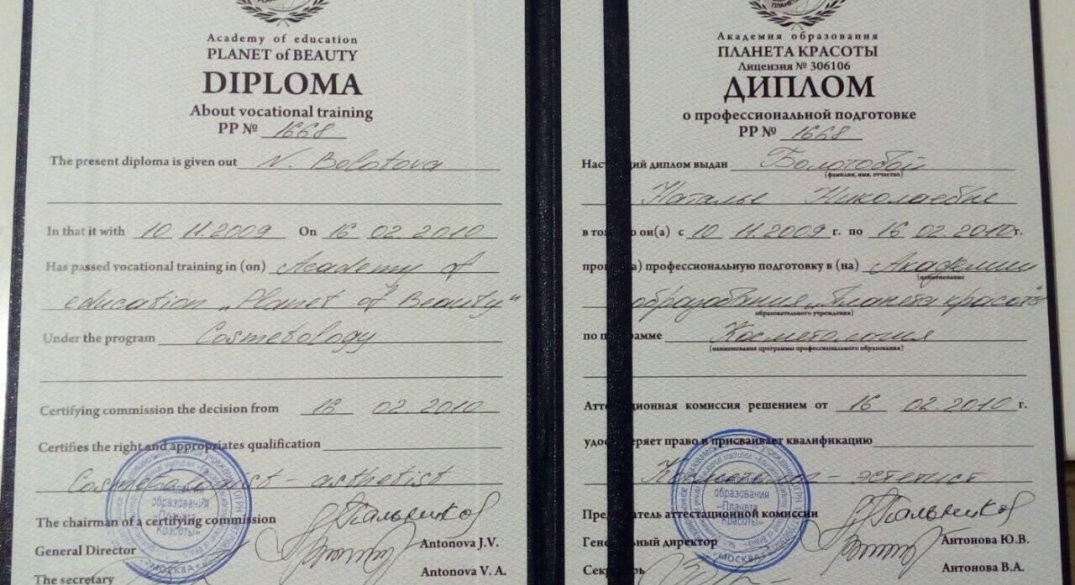 Academy of education
PLANET of BEAUTY
DIPLOMA
About vocational training
PP № 1668
The present diploma is given out N. Bolotova
In that it with 10 11.2009 On 16 02.2010
Has passed vocational training in (on) Academy of
education „Planet of Beauty"
Under the program Cosmetology
Certifying commission the decision from 16 02.2010
Certifies the right and appropriates qualification
Cosmetologist - esthetist
The chairman of a certifying commission
General Director Antonova J.V.
The secretary Antonova V. A.
образования
"Планета
Красоты"
МОСКВА
Академия образования
ПЛАНЕТА КРАСОТЫ
Лицензия № 306106
ДИПЛОМ
о профессиональной подготовке
PP № 1668
Настоящий диплом выдан Болотовой
(фамилия, имя, отчество)
Наталье Николаевне
в том что он(а) с 10 11.2009 г. по 16 02.2010 г.
прошел(а) профессиональную подготовку в (на) Академии
(наименование
образования „Планета красоты
образовательного учреждения)
по программе Косметология
(наименование программы профессионального образования)
Аттестационная комиссия решением от 16 02.2010 г.
удостоверяет право и присваивает квалификацию
Косметолог - эстетист
Председатель аттестационной комиссии
Генеральный директор Антонова Ю.В.
Секретарь Антонова В.А.
образования
"Планета
Красоты"
МОСКВА